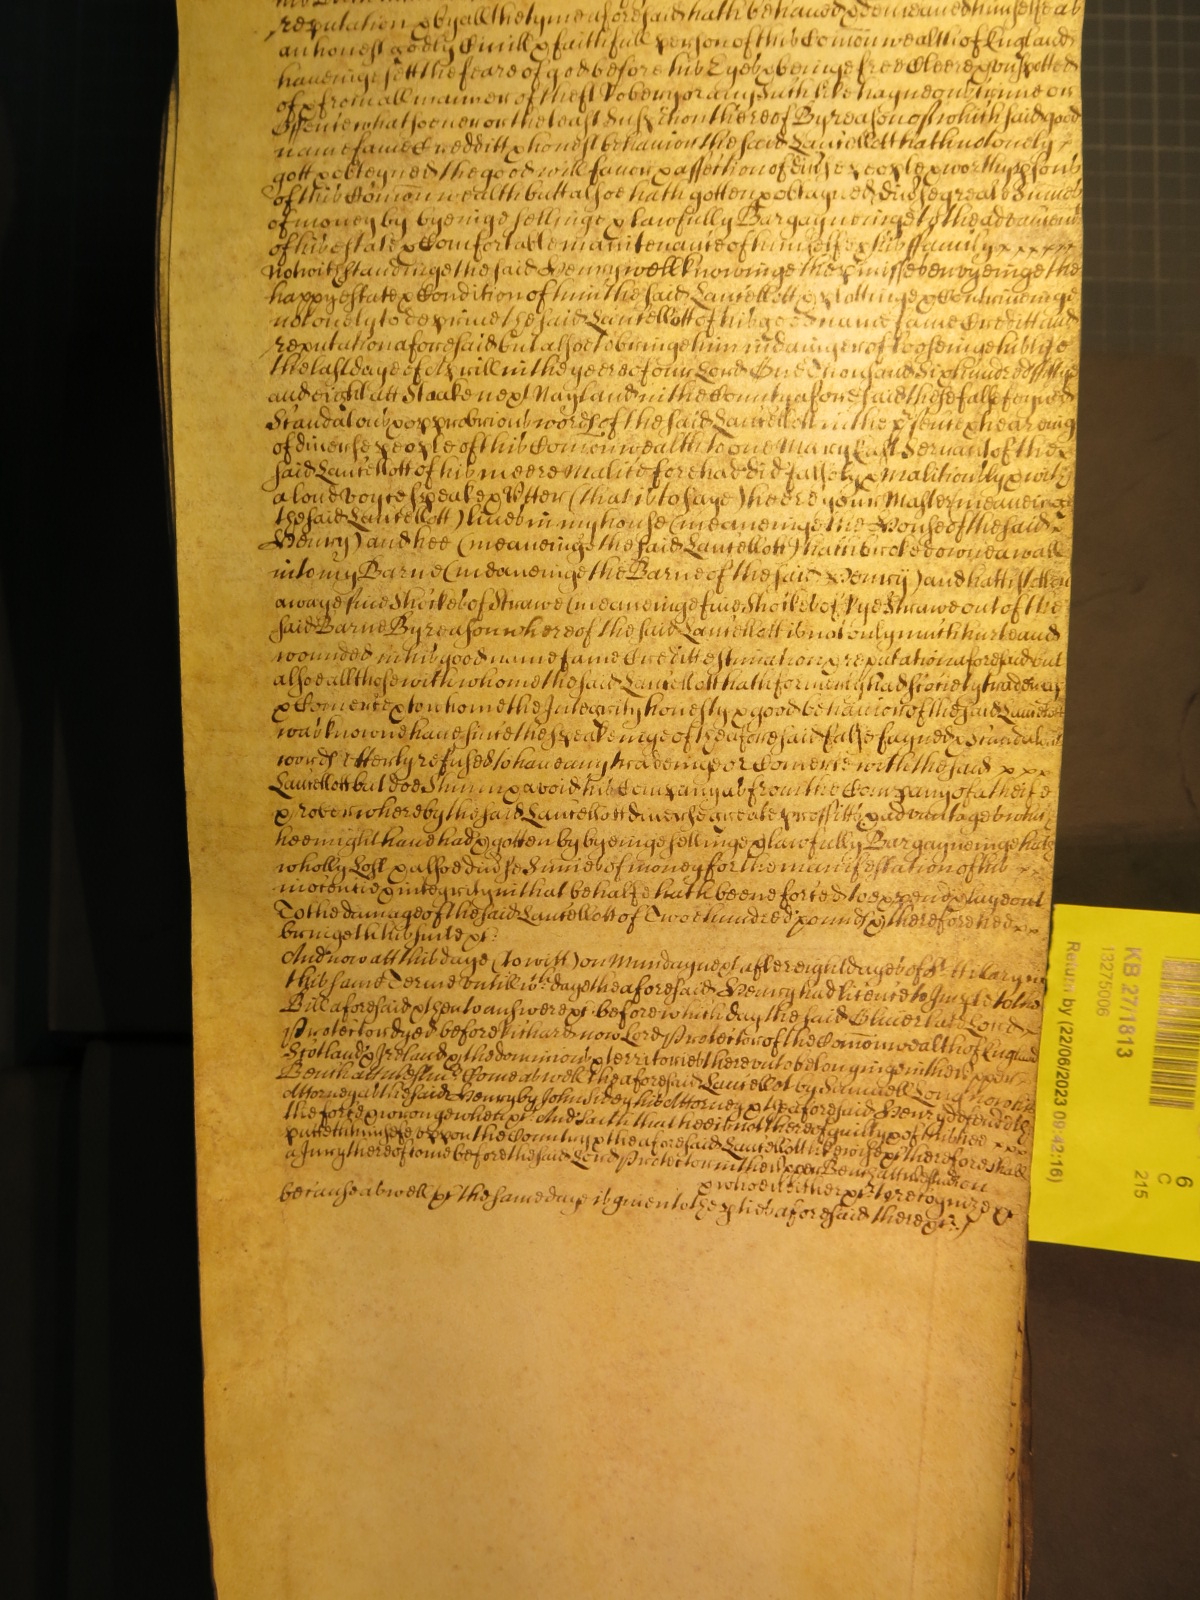 reputation & by all the tyme aforesaid hath behaved & demeaned himselfe as
an honest godly Civill & faithfull person of this Comonwealth of England
haveinge sett the feare of god before his Eyes & beinge free Cleere & unspotted
of & from all manner of theft Robery or any such like haynous Crime or
Offence whatsoever or the least suspition thereof By reason of which said good
name fame Creditt & honest behavior the said Lancellott hath not onely
gott & obteyned the good will favor & affection of diverse people & worthy psons
of this Comon wealth butt alsoe hath gotten & obtayned diverse greate Summes
of money by byeinge sellinge & lawfully Bargayneinge to the advancemt
of his estate & Comfortable maintenance of himselfe & his ffamily
Notwithstandinge the said Henry well knowinge the pmisses envyeinge the
happy estate & Condition of him the said Lancellott & plottinge & Contriveinge
not onely to deprive the said Lancellott of his good name fame Creditt and
reputation aforesaid but alsoe to bringe him in daunger of looseinge his life
the last daye of Aprill in the yeere of our Lord One Thousand Six hundred fiftye
and eight att Stoake next Nayland in the County aforesaid these false feigned
Scandalous & opprobrious words of the said Lancellott in the psence & hearing
of diverse people of this Comonwealth to one Mary East Servant of the
said Lancellott of his meere Malice forehad did falsly & Malitiously & with
a loud voyce speake & Utter (that is to saye) heere your Master meaneinge
the said Lancellott) lives in my house (meaneinge the House of the said
Henry) and hee (meaneinge the said Lancellott) hath broke downe a wall
into my Barne (meaneinge the Barne of the said Henry) and hath stollen
awaye five Shockes of Strawe (meaneinge five Shockes of Rye Strawe out of the
said Barne By reason whereof the said Lancellott is not only much hurte and
wounded in his good name fame Creditt estimation & reputation aforesaid but
alsoe all those with whome the said Lancellott hath formerly had Society tradeing
& Comerce & to whome the Integrity honesty & good behavior of the said Lancellott
was knowne have since the speakeinge of the aforesaid false fayned & Scandalous
words Utterly refused to have any tradeinge or Comerce with the said
Lancellott but doe Shunn & avoid his Company as from the Company of a theife
& rober whereby the said Lancellott diverse greate proffitts & advantages which
hee might have had & gotten by byeinge sellinge & lawfully Bargayneinge hath
wholly Lost & alsoe diverse Sumes of money for the manifestation of his
inocencie & integrity in that behalfe hath beene forced to expend & laye out
To the damage of the said Lancellott of Twoe hundred pounds & thereof
bringeth his suite &c:
And now att this daye (to witt) on Munday next after eight dayes of St Hillary in
this same Terme untill wch daye the aforesaid Henry had licence to Imparle to the
Bill aforesaid & then to answere &c: before which day the said Oliver late Lord
Protector dyed before Richard now Lord Protector of the Comonwealth of England
Scotland & Ireland & the dominions & territories thereunto belonginge in the upper
Bench att Westmr Come as well the aforesaid Lancellot by Samuell Long his
Attorney as the said Henry by John his Attorney & the aforesaid Henry defendeth
the force & wronge when &c: And saith that hee is not thereof guilty & of this hee
putteth himselfe uppon the Country & the aforesaid Lancellott likewise &c: therefore shall
a Jury thereof come before the said Lord Protector in the upper Bench att Westmr on
& who neither &c: to recognize &c
because as well &c: the same daye is given to the pties aforesaid there &c:
KB 27/1813
13275006
Return by (22/06/2023 09:42:16)
6
C
215